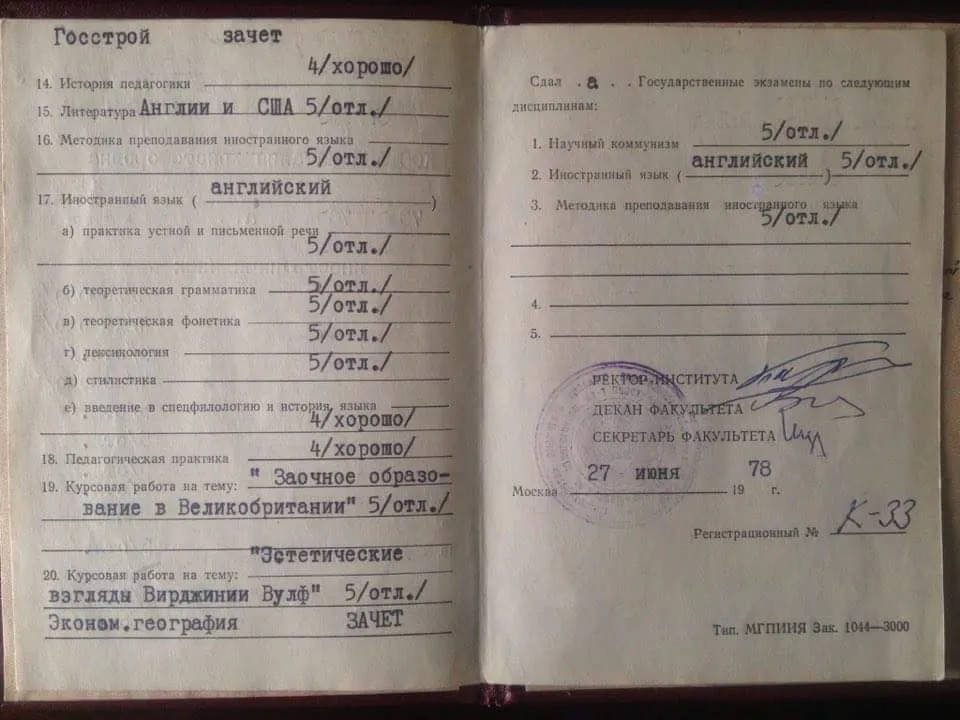 Госстрой зачет
14. История педагогики 4/хорошо/
15. Литература Англии и США 5/отл./
16. Методика преподавания иностранного языка
5/отл./
17. Иностранный язык ( английский )
а) практика устной и письменной речи
5/отл./
б) теоретическая грамматика 5/отл./
в) теоретическая фонетика 5/отл./
г) лексикология 5/отл./
д) стилистика 5/отл./
е) введение в спецфилологию и история языка
4/хорошо/
18. Педагогическая практика 4/хорошо/
19. Курсовая работа на тему: " Заочное образо-
вание в Великобритании" 5/отл./
20. Курсовая работа на тему: "Эстетические
взгляды Вирджинии Вулф" 5/отл./
Эконом.география ЗАЧЕТ
Сдал .а. . Государственные экзамены по следующим
дисциплинам:
1. Научный коммунизм 5/отл./
2. Иностранный язык ( английский ) 5/отл./
3. Методика преподавания иностранного языка
5/отл./
4.
5.
РЕКТОР ИНСТИТУТА
ДЕКАН ФАКУЛЬТЕТА
СЕКРЕТАРЬ ФАКУЛЬТЕТА
Москва 27 июня 1978 г.
Регистрационный № К-33
Тип. МГПИИЯ Зак. 1044—3000